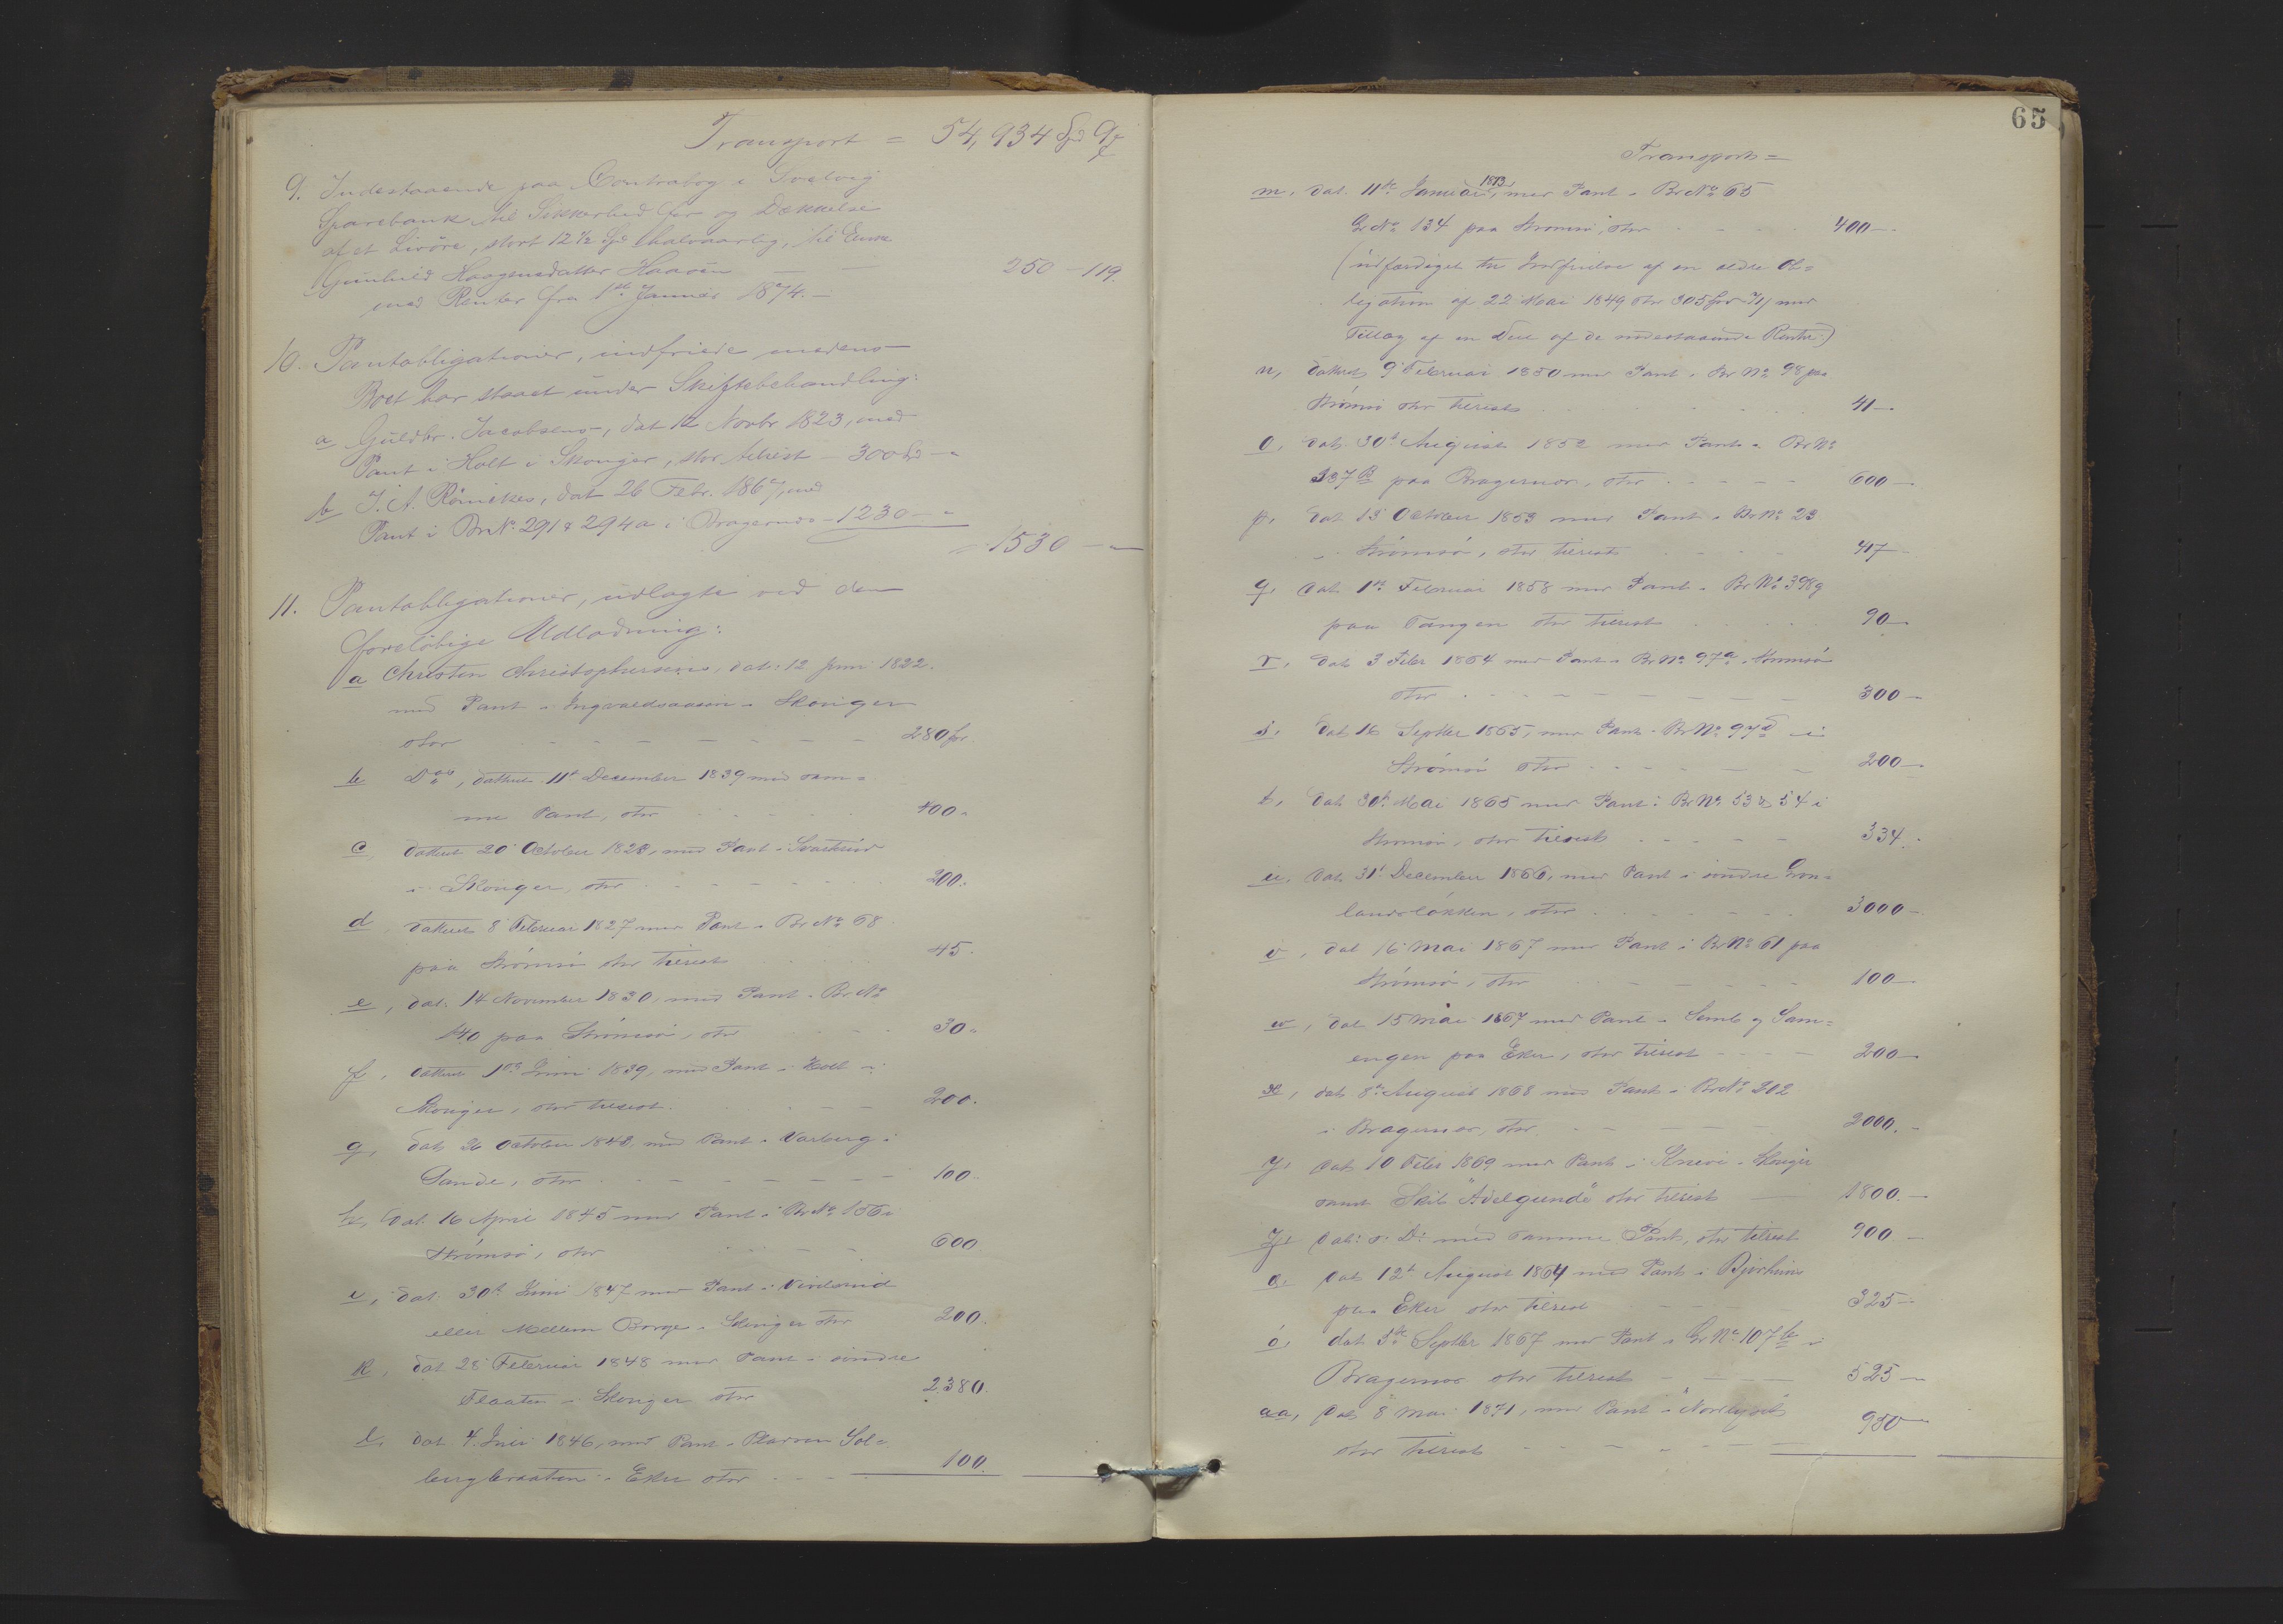 Transport = 54,934 Spd 9 ß
9. Indestaaende paa Contrabog i Svelvig
Sparebank til Sikkerhed for og Dækkelse
af et Livøre, stort 12 1/2 Spd halvaarlig, til Enke
Gunhild Haagensdatter Haaøen — — 250 - 119.
med Renter fra 1ste Januar 1874. —
10. Pantobligationer, indfriede medens
Boet har staaet under Skiftebehandling:
a Guldbr. Jacobsens, dat 12 Novbr 1823, med
Pant i Holt i Skouger, stor tilrest - 300 Spd - "
b J. A. Rønickes, dat 26 Febr. 1867, med
Pant i Br.No. 291 & 294a i Bragernæs - 1230 - "
= 1530 - —
11. Pantobligationer, udlagte ved den
foreløbige Udlodning:
a Christen Christophersens, dat: 12 Juni 1822.
med Pant i Ingvaldsaasen i Skouger
stor - - - - - - - - 280 Spd.
b Do, dateret 11te December 1839 med sam=
me Pant, stor - - - - 400 "
c, dateret 20 October 1828, med Pant i Svartsrød
i Skouger, stor - - - - - - 200.
d, dateret 8 Februar 1827 med Pant i Br No 68
paa Strømsø stor tilrest - - - 45.
e, dat. 14 November 1830, med Pant i Br No
140 paa Strømsø, stor - - - 30 "
f, dateret 1ste Juni 1839, med Pant i Holt i
Skouger, stor tilrest. - - - 200.
g, dat 26 October 1848, med Pant i Varberg i
Sande, stor - - - - - - - 100.
h, Dat. 16 April 1845 med Pant i Br No 156 i
Strømsø, stor - - - - 600
i, dat. 30te Juni 1847 med Pant i
eller Mellem Borge i Skouger stor 200.
k, dat 28 Februar 1848 med Pant i søndre
Flaaten i Skouger stor 2380.
l, dat 4 Juli 1846, med Pant i Pladsen Sol=
bergbraaten i Eker stor - - - 100.
65
Transport =
m, dat. 11te Januar 1873, med Pant i Br No 65
Gr No 134 paa Strømsø, stor - - - - 400 —
(udfærdiget til Indfrielse af en ældre Ob=
ligation af 22 Mai 1849 stor 305 Spd med
Tillæg af en Deel af de resterende Renter)
n, dateret 9 Februar 1850 med Pant i Br No 98 paa
Strømsø stor tilrest - - - - 41 —
o, dat. 30te August 1852 med Pant i Br No
137 B paa Bragernæs, stor - - - - - 600 —
p, dat 13 October 1853 med Pant i Br No 23
i Strømsø, stor tilrest - - - - 47 —
q, dat 1ste Februar 1858 med Pant i Br No 398g
paa Tangen stor tilrest - - - - 90 —
r, dat 3 Febr 1864 med Pant i Br No 97a i Strømsø
stor - - - - - - - - 300 —
s, dat 16 Septbr 1865, med Pant i Br No 97d i
Strømsø stor - - - - - - 200 —
t, dat 30te Mai 1865 med Pant i Br No 53 & 54 i
Strømsø, stor tilrest - - - - - 334. -
u, dat 31te December 1866, med Pant i søndre Grøn=
landsløkken, stor - - - - - - 3000 —
v, dat 16 Mai 1867 med Pant i Br No 61 paa
Strømsø, stor - - - - - 100 —
w, dat 15 Mai 1867 med Pant i Semb og Sam=
engen paa Eker, stor tilrest - - - - 200 —
x, dat 8de August 1868 med Pant i Br No 302
i Bragernæs, stor - - - - - 2000. -
y, dat 10 Febr 1869 med Pant i Knive i Skouger
samt Skib "Adelgunde" stor tilrest — 1800. —
z, dat: s: D: med samme Pant, stor tilrest 900 —
æ, dat 12te August 1864 med Pant i
paa Eker stor tilrest - - - 325 -
ø, dat 3de Septbr 1867 med Pant i Gr No 107b i
Bragernæs stor tilrest - - - - 525 —
aa, dat 8 Mai 1871, med Pant i "Nordlyset"
stor tilrest - - - - - - - 950 —